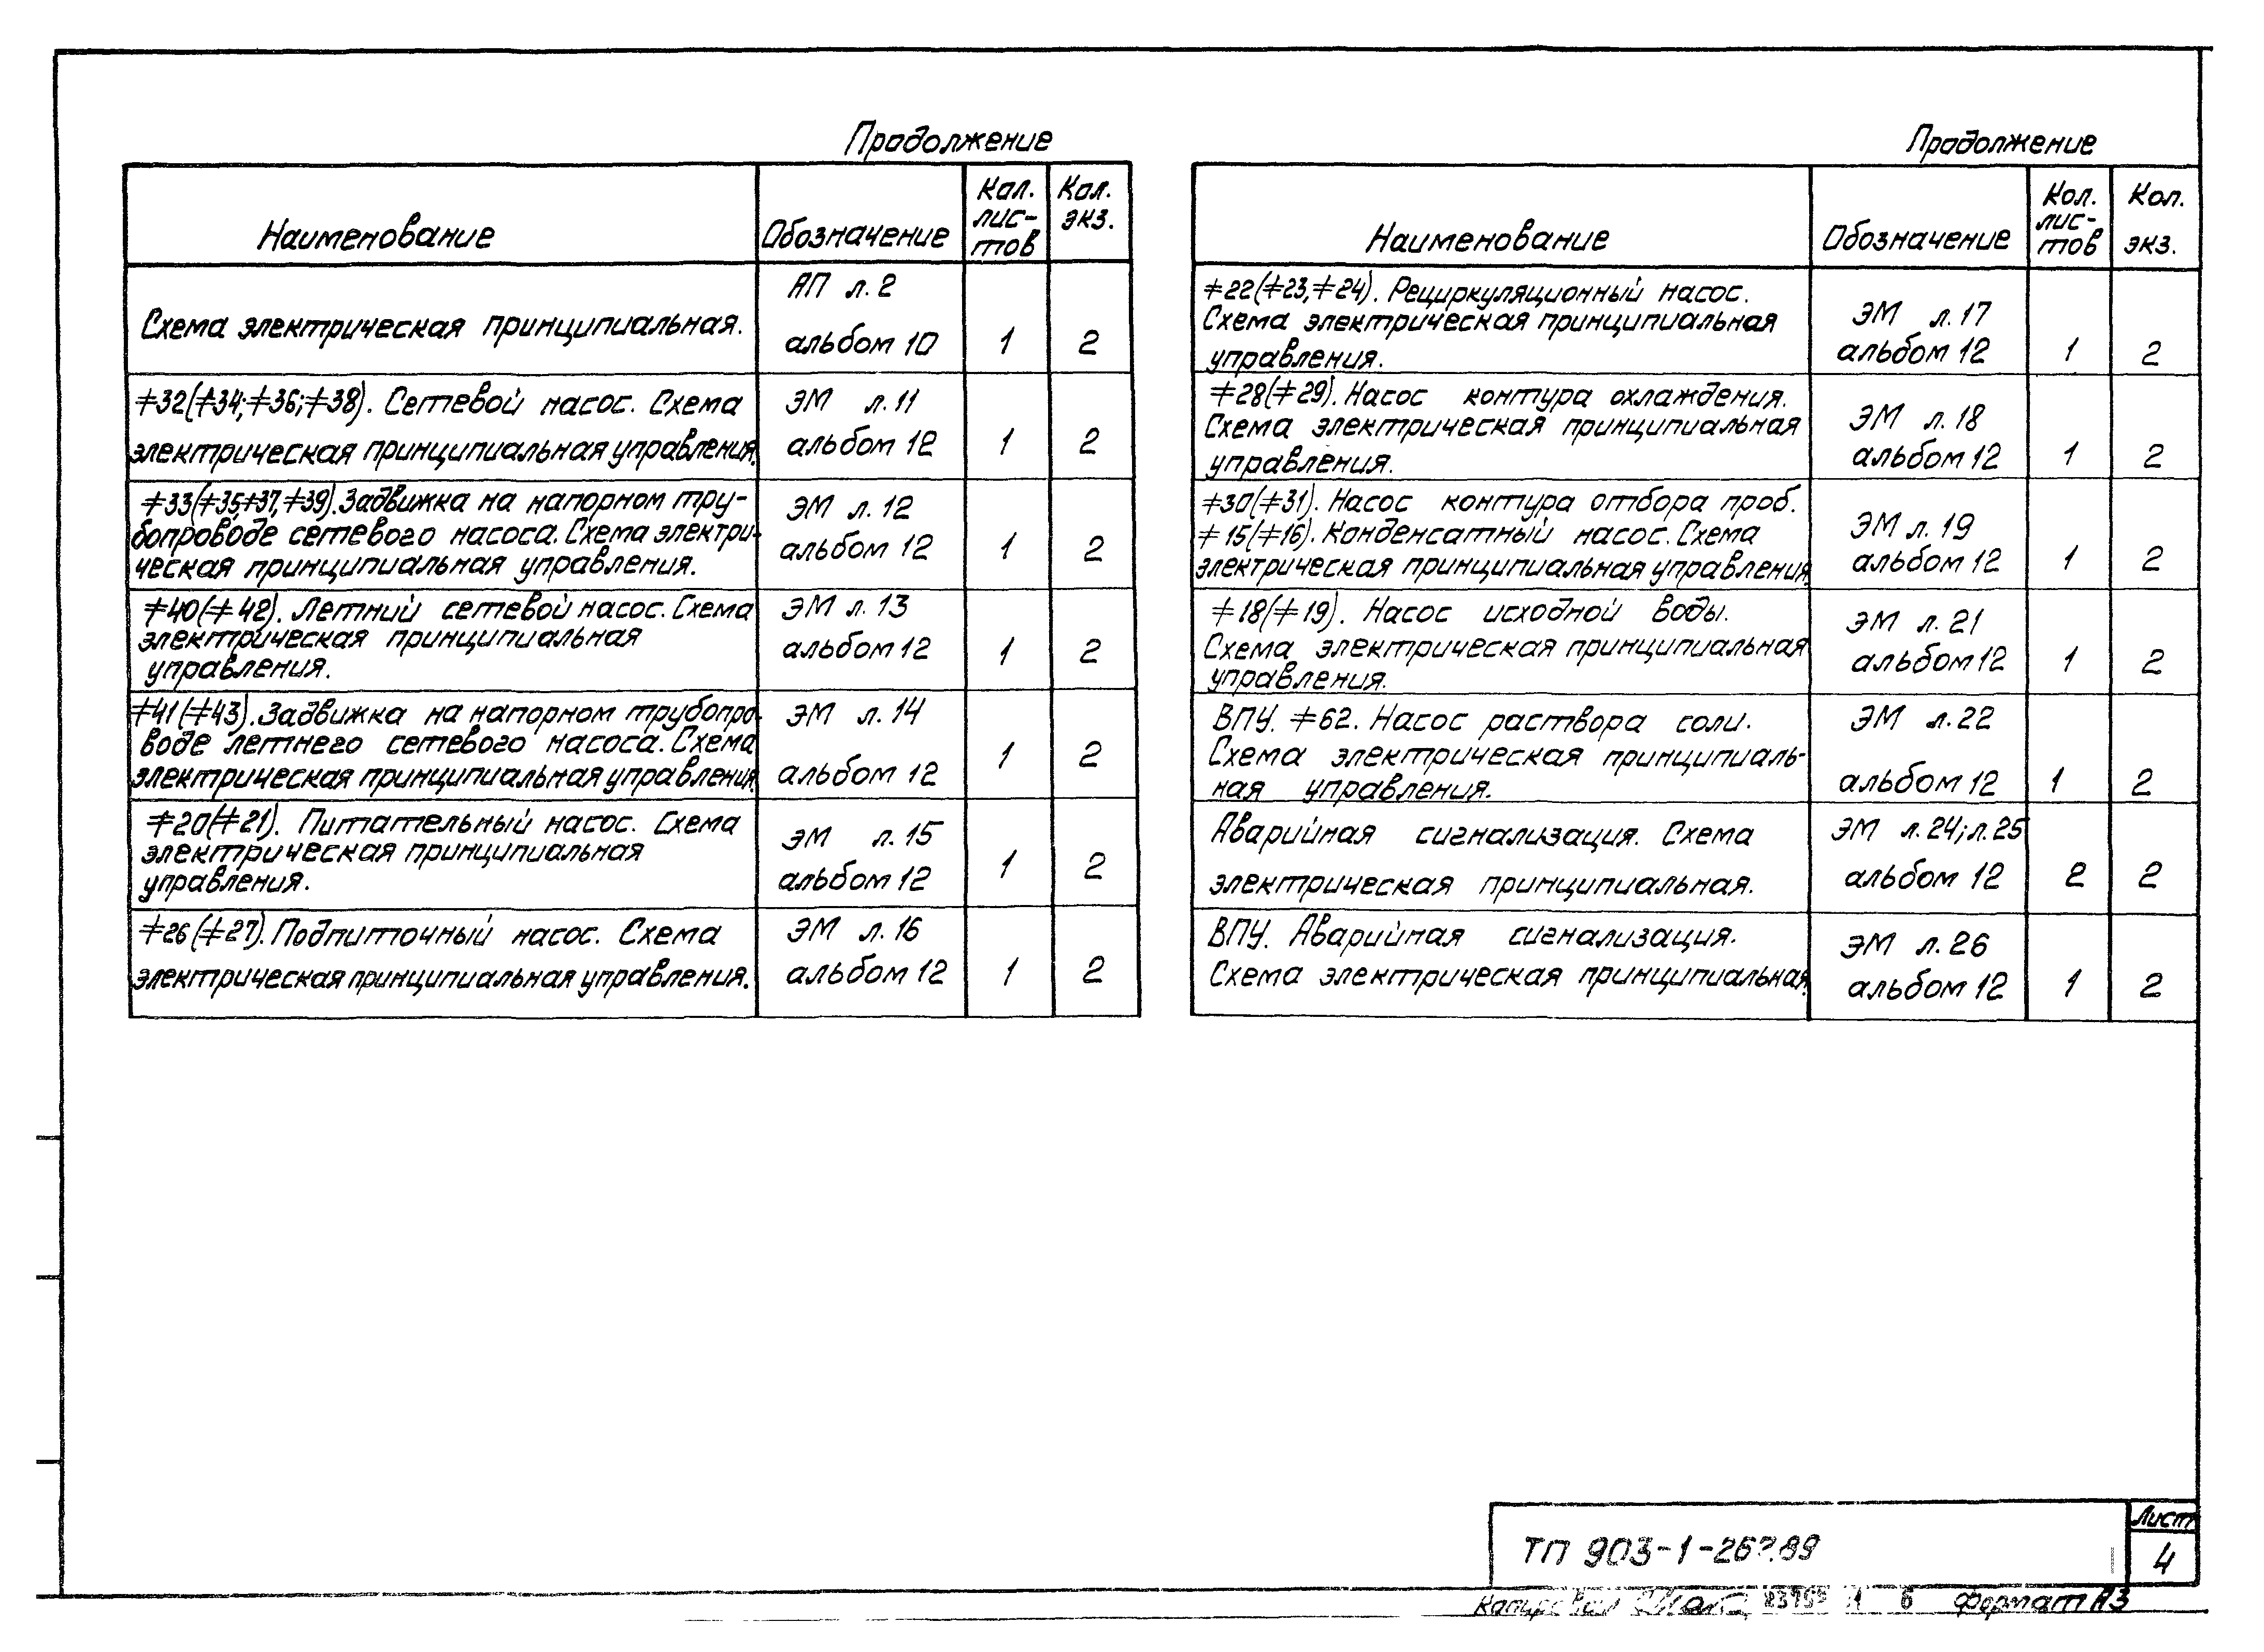 Продолжение
Наименование
Обозначение
Кол.
лис-
тов
Кол.
экз.
Схема электрическая принципиальная.
АП л.2
альбом 10
1
2
≠32(≠34;≠36;≠38). Сетевой насос. Схема
электрическая принципиальная управления.
ЭМ л.11
альбом 12
1
2
≠33(≠35,≠37,≠39).Задвижка на напорном тру-
бопроводе сетевого насоса. Схема электри-
ческая принципиальная управления.
ЭМ л.12
альбом 12
1
2
≠40(≠42). Летний сетевой насос. Схема
электрическая принципиальная
управления.
ЭМ л.13
альбом 12
1
2
≠41(≠43).Задвижка на напорном трубопро-
воде летнего сетевого насоса. Схема
электрическая принципиальная управления.
ЭМ л.14
альбом 12
1
2
≠20(≠21). Питательный насос. Схема
электрическая принципиальная
управления.
ЭМ л.15
альбом 12
1
2
≠26(≠27).Подпиточный насос. Схема
электрическая принципиальная управления.
ЭМ л.16
альбом 12
1
2
Продолжение
Наименование
Обозначение
Кол.
лис-
тов
Кол.
экз.
≠22(≠23,≠24). Рециркуляционный насос.
Схема электрическая принципиальная
управления.
ЭМ л.17
альбом 12
1
2
≠28(≠29). Насос контура охлаждения.
Схема электрическая принципиальная
управления.
ЭМ л.18
альбом 12
1
2
≠30(≠31). Насос контура отбора проб.
≠15(≠16). Конденсатный насос. Схема
электрическая принципиальная управления.
ЭМ л.19
альбом 12
1
2
≠18(≠19). Насос исходной воды.
Схема электрическая принципиальная
управления.
ЭМ л.21
альбом 12
1
2
ВПУ. ≠62. Насос раствора соли.
Схема электрическая принципиаль-
ная управления.
ЭМ л.22
альбом 12
1
2
Аварийная сигнализация. Схема
электрическая принципиальная.
ЭМ л.24;л.25
альбом 12
2
2
ВПУ. Аварийная сигнализация.
Схема электрическая принципиальная.
ЭМ л.26
альбом 12
1
2
ТП 903-1-26?.89
Лист
4
Копировал
6
Формат А3